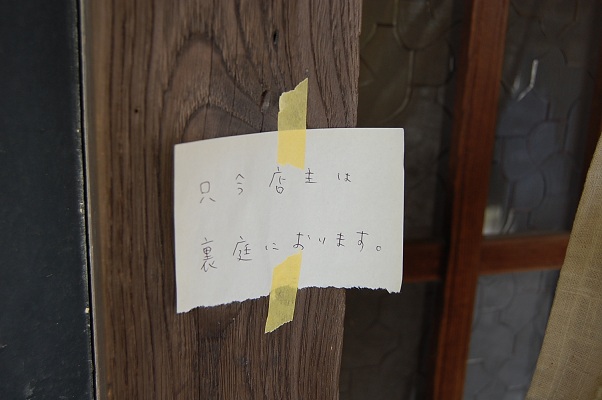 只今店主は
裏庭におります。